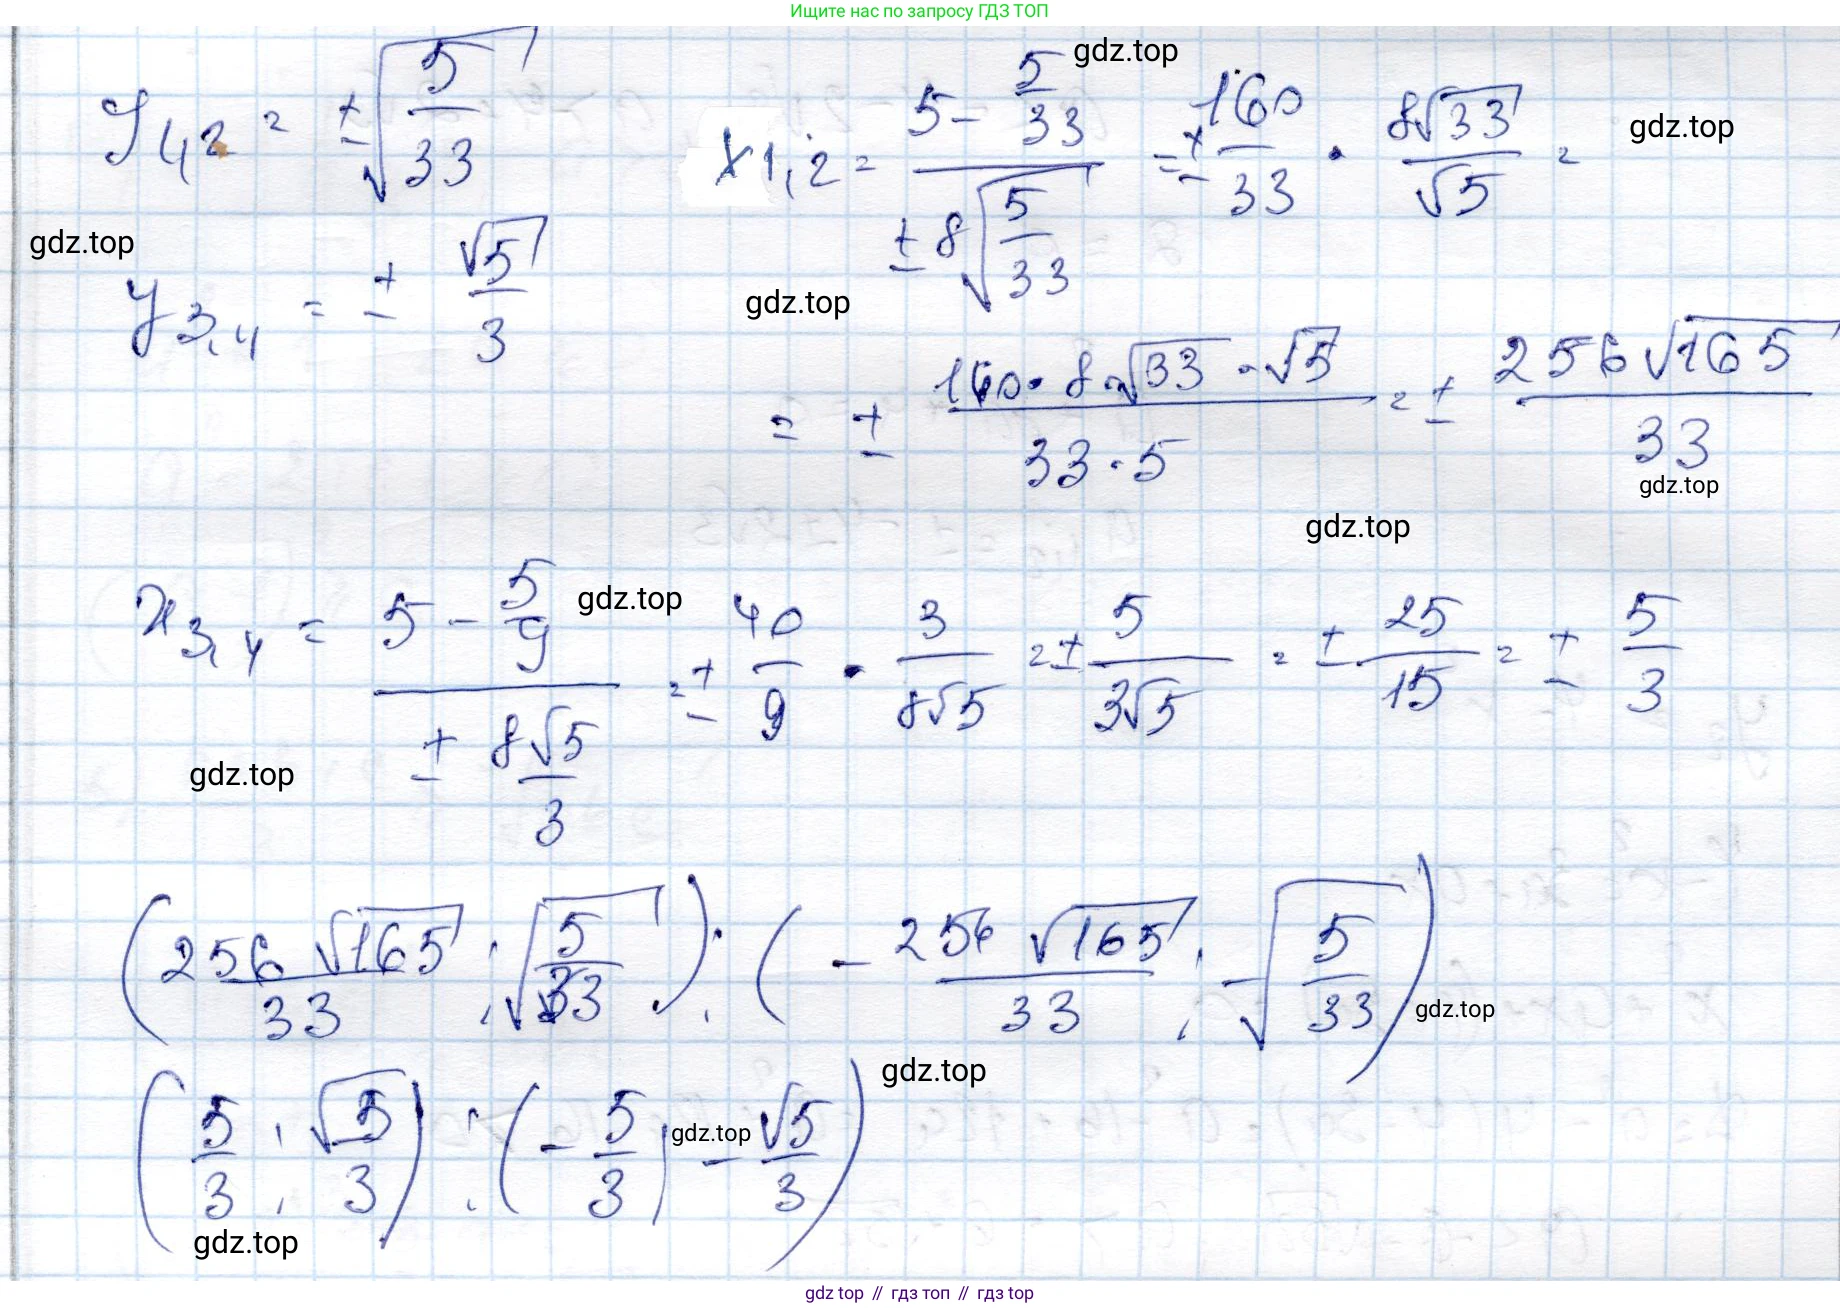 Ищите нас по запросу ГДЗ ТОП
y₁,₂ = ±√(5/33) x₁,₂ = (5 - 5/33)/(±8√(5/33)) = ± 160/33 · 8√33/√5 =
gdz.top
gdz.top
gdz.top
y₃,₄ = ± √5/3
gdz.top
= ± (160 · 8 · √33 · √5)/(33 · 5) = ± 256√165/33
gdz.top
gdz.top
x₃,₄ = (5 - 5/9)/(± 8√5/3) = ± 40/9 · 3/(8√5) = ± 5/(3√5) = ± 25/15 = ± 5/3
gdz.top
gdz.top
(256√165/33 ; √(5/33)) ; (- 256√165/33 ; -√(5/33))
gdz.top
gdz.top
(5/3 ; √5/3) ; (- 5/3 ; - √5/3)
gdz.top
gdz.top
gdz top // гдз топ // gdz top